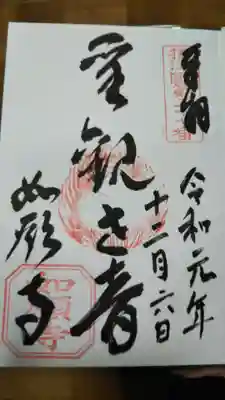 奉拝
令和元年
十二月六日
聖観世音
如願寺
如願寺